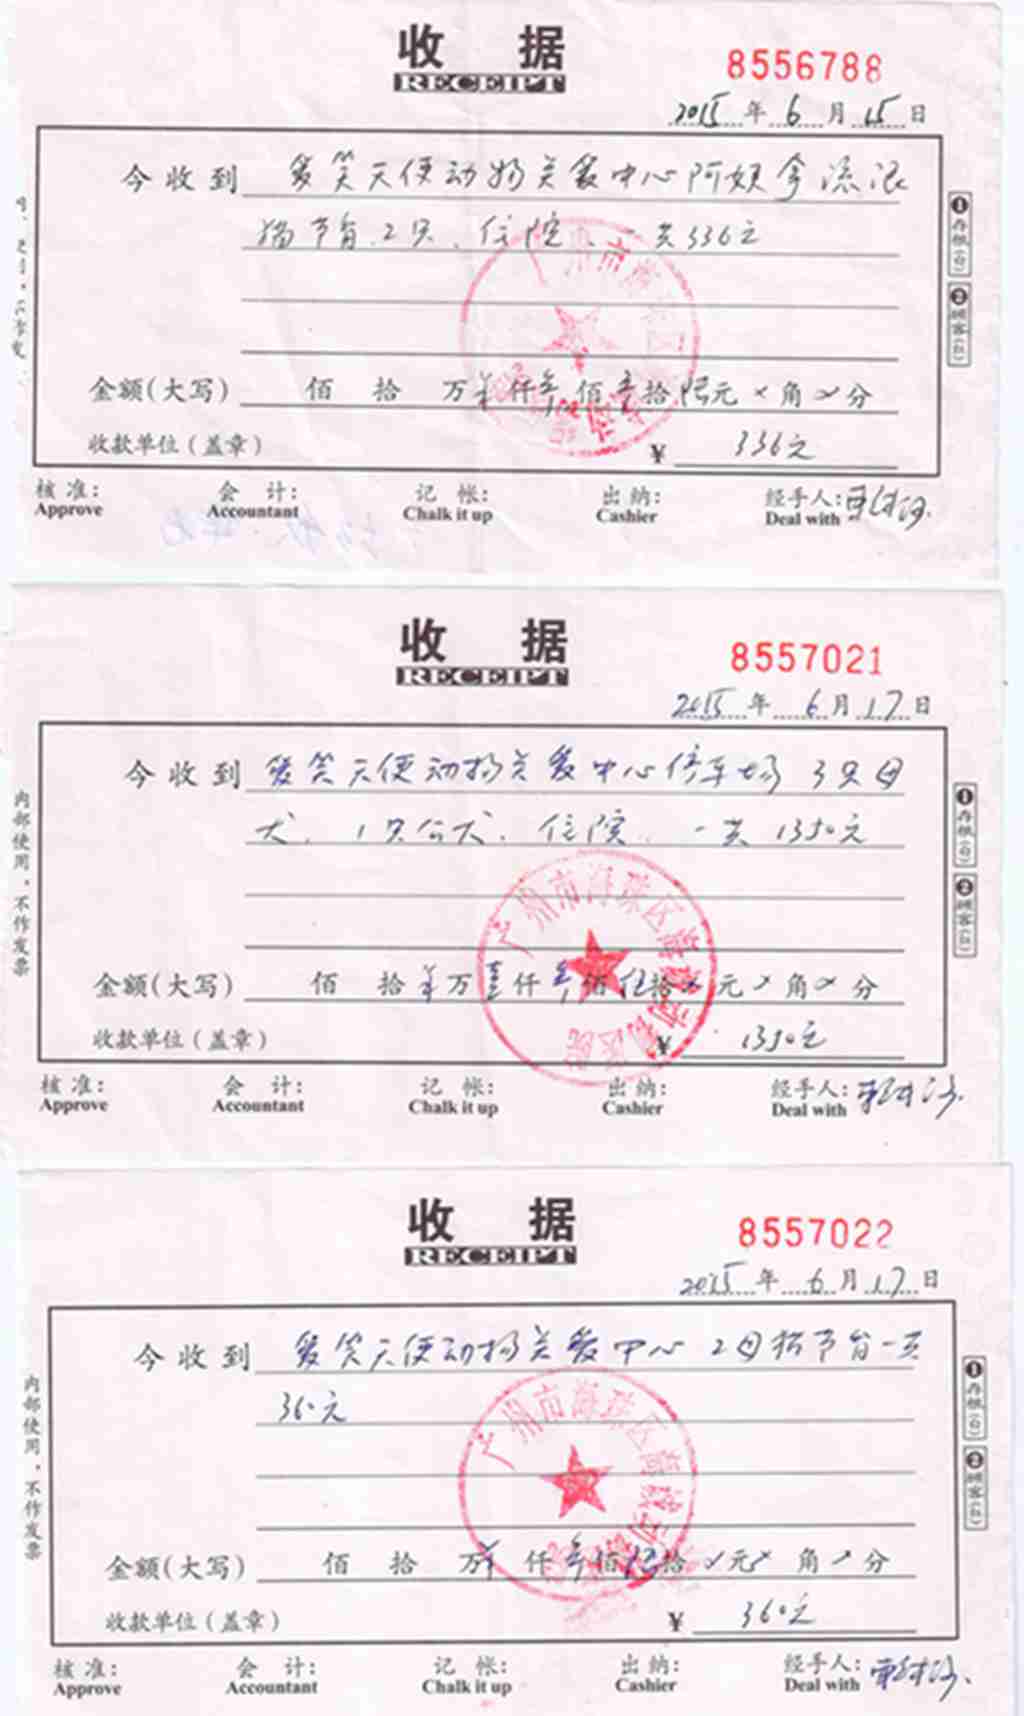 收 据
RECEIPT
8556788
2015年6月15日
今收到 爱笑天使动物关爱中心阿娘拿流浪
猫节育2只、住院、一共336元
金额(大写) 佰 拾 万 仟叁佰叁拾陆元×角×分
收款单位(盖章) ¥ 336元
核准: 会 计: 记 帐: 出纳: 经手人:
Approve Accountant Chalk it up Cashier Deal with
①存根(白) ②顾客(红)
收 据
RECEIPT
8557021
2015年6月17日
今收到 爱笑天使动物关爱中心停车场 3只母
犬、1只公犬、住院、一共1350元
金额(大写) 佰 拾 万壹仟叁佰伍拾×元×角×分
收款单位(盖章) ¥ 1350元
核准: 会 计: 记 帐: 出纳: 经手人:
Approve Accountant Chalk it up Cashier Deal with
内部使用,不作发票
①存根(白) ②顾客(红)
广州市海珠区
收 据
RECEIPT
8557022
2015年6月17日
今收到 爱笑天使动物关爱中心 2母猫节育一共
360元
金额(大写) 佰 拾 万 仟叁佰陆拾×元×角×分
收款单位(盖章) ¥ 360元
核准: 会 计: 记 帐: 出纳: 经手人:
Approve Accountant Chalk it up Cashier Deal with
内部使用,不作发票
①存根(白) ②顾客(红)
广州市海珠区